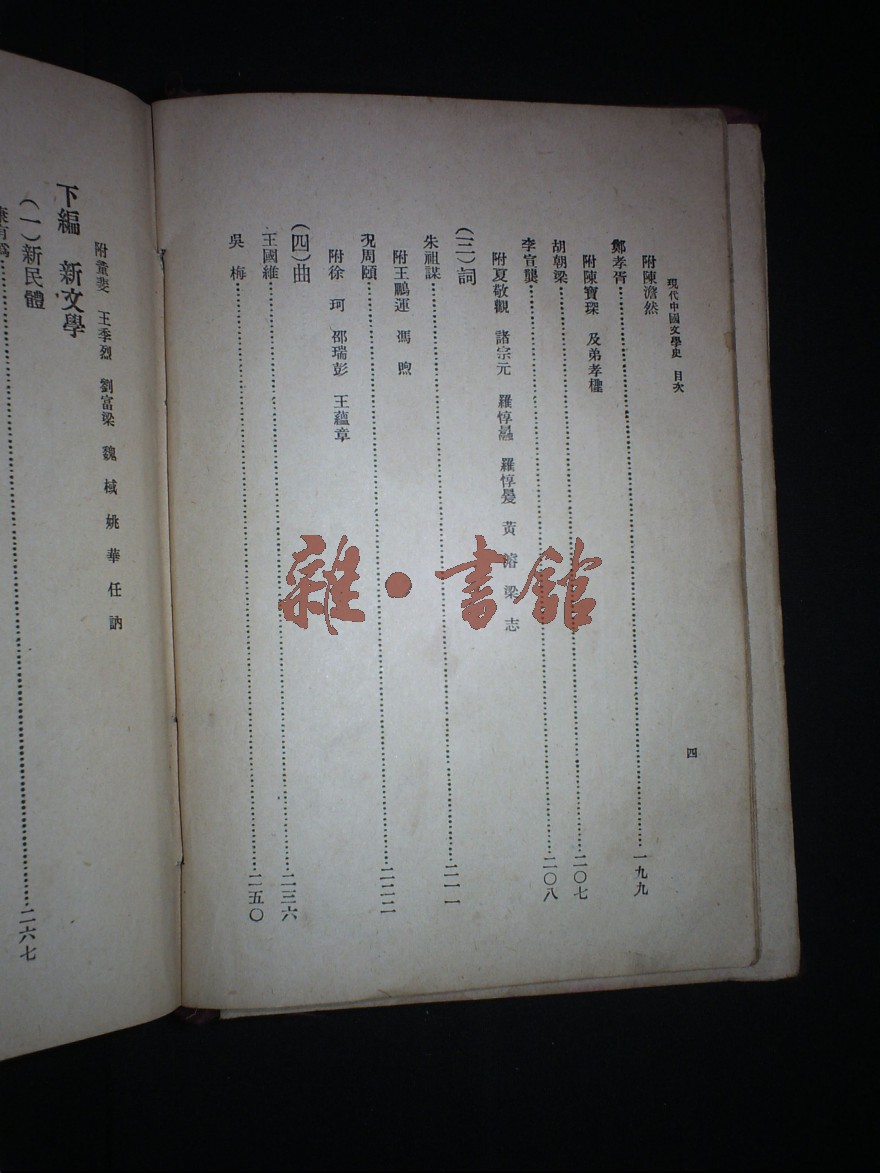 現代中國文學史 目次
四
附陳澹然
鄭孝胥……一九九
附陳寶琛 及弟孝檉
胡朝梁……二〇七
李宣龔……二〇八
附夏敬觀 諸宗元 羅惇曧 羅惇㬊 黃濬 梁志
(三)詞
朱祖謀……二一一
附王鵬運 馮煦
況周頤……二二二
附徐珂 邵瑞彭 王蘊章
(四)曲
王國維……二三六
吳梅……二五〇
王季烈 劉富梁 魏戫 姚華 任訥
下編 新文學
(一)新民體
康有爲……二六七
雜·書館